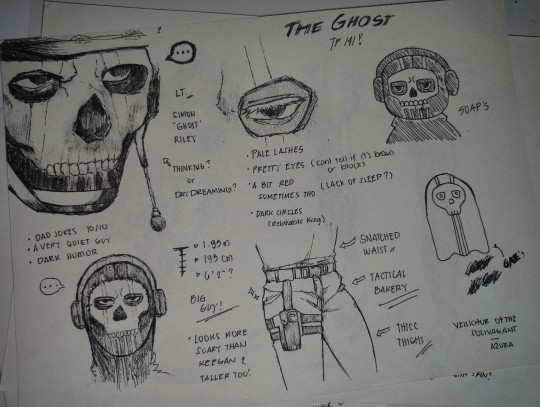 THE GHOST
TF 141!
LT.
SIMON
"GHOST"
RILEY
THINKING?
or
DAY DREAMING?
SOAP'S
• PALE LASHES
• PRETTY EYES (cant tell if it's brown
or black)
• A BIT RED
SOMETIMES THO (LACK OF SLEEP?)
• DARK CIRCLES
(Relatable King)
• DAD JOKES 10/10
• A VERY QUIET GUY
• DARK HUMOR
• 1.93m
• 193 cm
• 6'2"?
BIG
GUY!
• LOOKS MORE
SCARY THAN
KEEGAN &
TALLER TOO!
SNATCHED
WAIST
TACTICAL
BAKERY
THICC
THIGHS
OF THE
AZURA